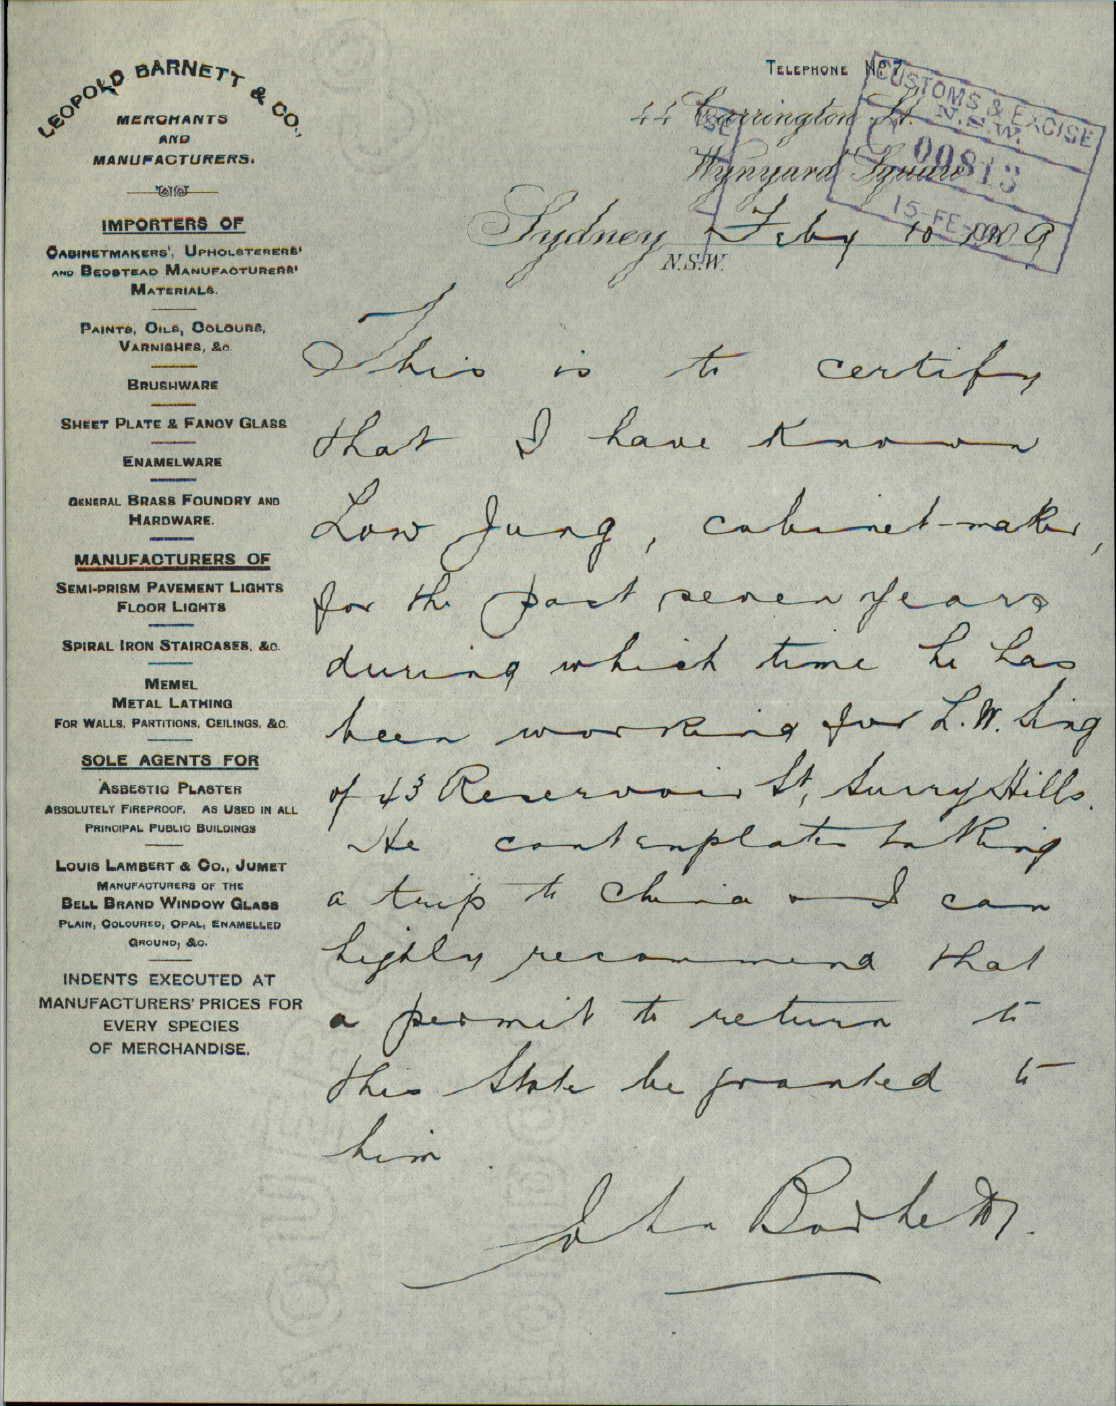 LEOPOLD BARNETT & CO.
MERCHANTS
AND
MANUFACTURERS.
IMPORTERS OF
CABINETMAKERS', UPHOLSTERERS'
AND BEDSTEAD MANUFACTURERS'
MATERIALS.
PAINTS, OILS, COLOURS,
VARNISHES, &c.
BRUSHWARE
SHEET PLATE & FANCY GLASS
ENAMELWARE
GENERAL BRASS FOUNDRY AND
HARDWARE.
MANUFACTURERS OF
SEMI-PRISM PAVEMENT LIGHTS
FLOOR LIGHTS
SPIRAL IRON STAIRCASES, &c.
MEMEL
METAL LATHING
FOR WALLS, PARTITIONS, CEILINGS, &c.
SOLE AGENTS FOR
ASBESTIC PLASTER
ABSOLUTELY FIREPROOF. AS USED IN ALL
PRINCIPAL PUBLIC BUILDINGS
LOUIS LAMBERT & CO., JUMET
MANUFACTURERS OF THE
BELL BRAND WINDOW GLASS
PLAIN, COLOURED, OPAL, ENAMELLED
GROUND, &c.
INDENTS EXECUTED AT
MANUFACTURERS' PRICES FOR
EVERY SPECIES
OF MERCHANDISE.
TELEPHONE No 7
44 Carrington St.
Wynyard Square
Sydney Feby 10 1909
N.S.W.
CUSTOMS & EXCISE
N.S.W.
00813
15-FE
This is to certify
that I have known
Low Jung, cabinet-maker,
for the past seven years
during which time he has
been working for L.W. Sing
of 43 Reservoir St, Surry Hills.
He contemplates taking
a trip to China & I can
highly recommend that
a permit to return to
this State be granted to
him
John